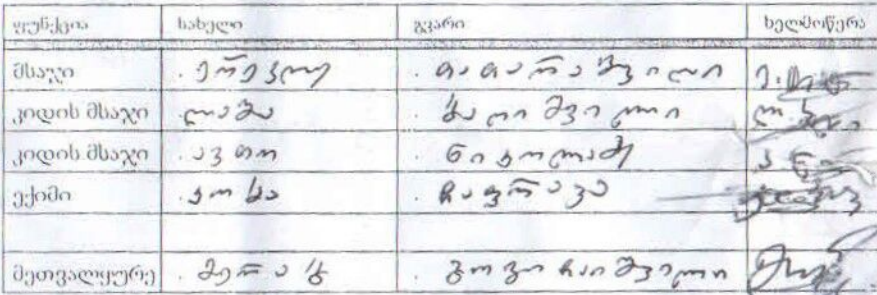 ფუნქცია სახელი გვარი ხელმოწერა
მსაჯი ერეკლე თათარაშვილი
კიდის მსაჯი ლაშა
კიდის მსაჯი ავთო ნიკოლაძე
ექიმი კობა ჩაფრავა
მეთვალყურე მერაბ გოგოჩაიშვილი